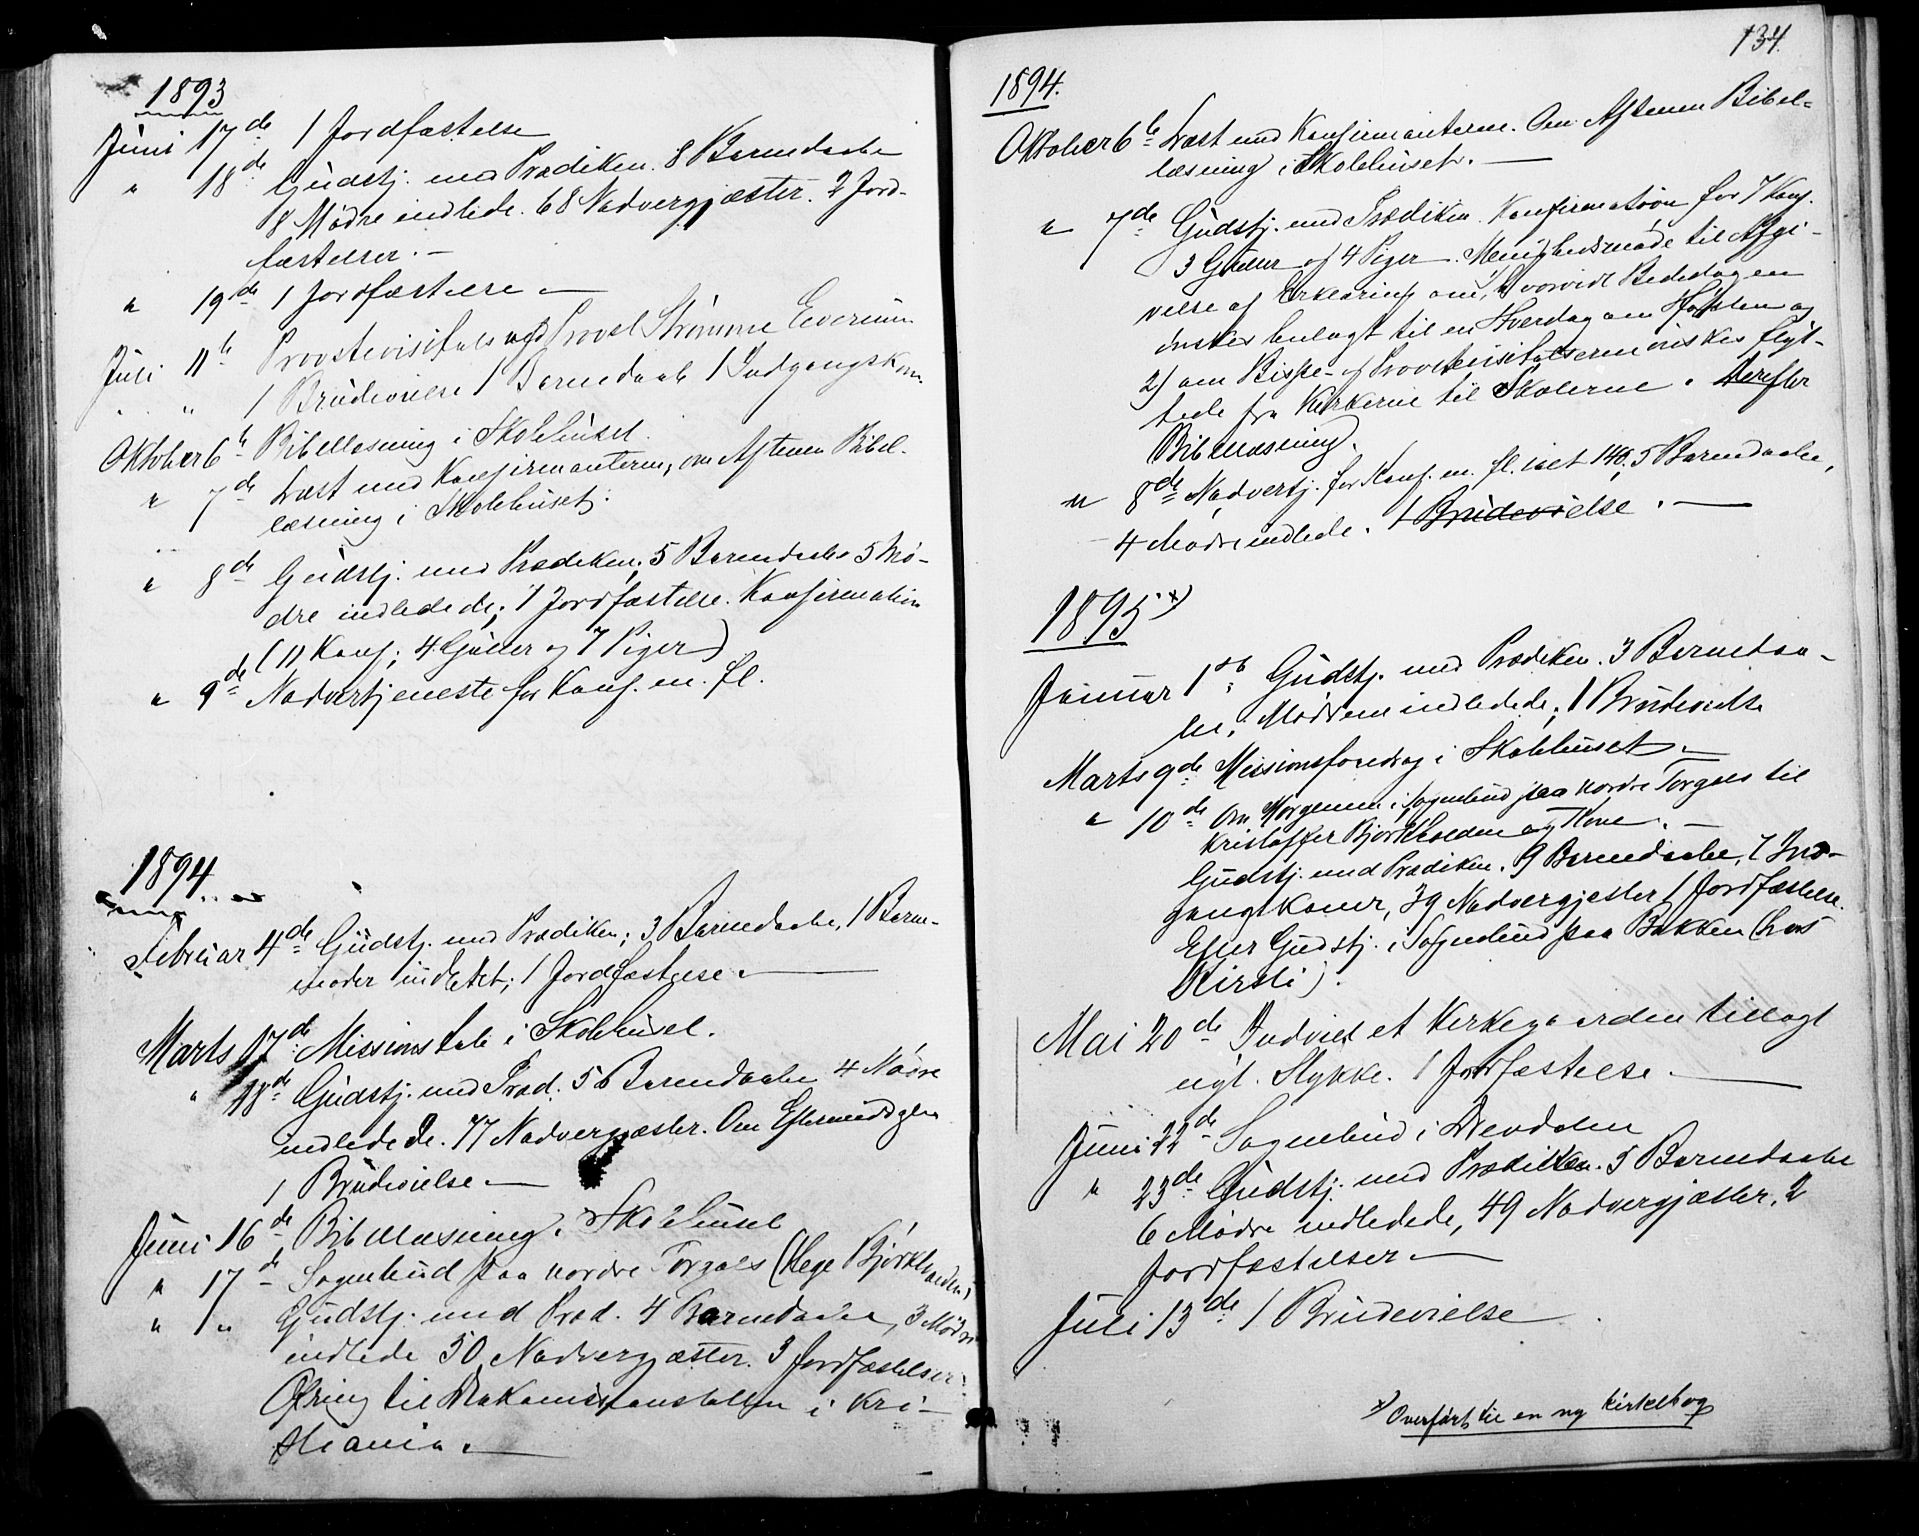 1893
Juni 17de 1 Jordfæstelse
" 18de Gudstj. med Prædiken. 8 Barnedaabe
8 Mødre indlede. 68 Nadvergjæster. 2 Jord-
fæstelser. -
" 19de 1 Jordfæstelse -
Juli 11te Provstevisitats ved Provst Strømme
" " 1 Brudevielse 1 Barnedaab 1 Indgangskone
Oktober 6te Bibellæsning i Skolehuset.
" 7de Læst med Konfirmanterne, om Aftenen Bibel-
læsning i Skolehuset.
" 8de Gudstj. med Prædiken; 5 Barnedaabe 5 Mø-
dre indledede; 1 Jordfæstelse. Konfirmation
(11 Konf; 4 Gutter og 7 Piger)
" 9de Nadvertjeneste for Konf. m. fl.
1894
Februar 4de Gudstj. med Prædiken; 3 Barnedaabe, 1 Barne-
moder indledet; 1 Jordfæstelse. -
Marts 17de Missionstale i Skolehuset.
" 18de Gudstj. med Præd. 5 Barnedaabe 4 Mødre
indledede. 77 Nadvergjæster. Om Eftermiddagen
1 Brudevielse -
Juni 16de Bibellæsning i Skolehuset
" 17de Sognebud paa nordre Torgals (Hege Bjørkhaalden)
" " Gudstj. med Præd. 4 Barnedaabe, 3 Mødre
indlede 50 Nadvergjæster. 3 Jordfæstelser.
Ofring til Diakonisseanstalten i Kri-
stiania. -
134.
1894.
Oktober 6te Læst med Konfirmanterne. Om Aftenen Bibel-
læsning i Skolehuset. -
" 7de Gudstj. med Prædiken. Konfirmation for 7 Konf.
3 Gutter og 4 Piger. Menighedsmøde til Afgi-
velse af Erklæring om, 1) hvorvidt Bededagen
ønskes henlagt til en Hverdag om Høsten og
2) om Bispe- og Provstevisitatserne ønskes flyt-
tede fra Kirkerne til Skolerne. Derefter
Bibellæsning.
" 8de Nadvertj. for Konf. m. fl. 140, 5 Barnedaabe,
4 Mødre indlede. 1 Brudevielse. -
1895 x)
Januar 1ste Gudstj. med Prædiken. 3 Barnedaa-
be, Mødrene indledede; 1 Brudevielse
Marts 9de Missionsforedrag i Skolehuset. -
" 10de Om Morgenen i Sognebud paa nordre Torgals til
Kristoffer Bjørkhaalden og Kone. -
Gudstj. med Prædiken. 9 Barnedaabe, 7 Ind-
gangskoner, 39 Nadvergjæster, 1 Jordfæstelse.
Efter Gudstj. i Sognebud paa Bakken (hos
Kirsti).
Mai 20de Indviet et Kirkegaarden tillagt
nyt Stykke. 1 Jordfæstelse. -
Juni 22de Sognebud i
" 23de Gudstj. med Prædiken. 5 Barnedaabe
6 Mødre indledede, 49 Nadvergjæster, 2
Jordfæstelser -
Juli 13de 1 Brudevielse
x) Overført til en ny kirkebog